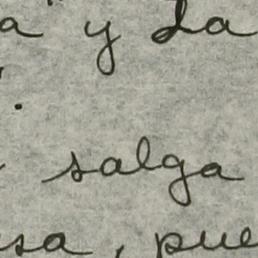 a" y La
salga
sa, pue